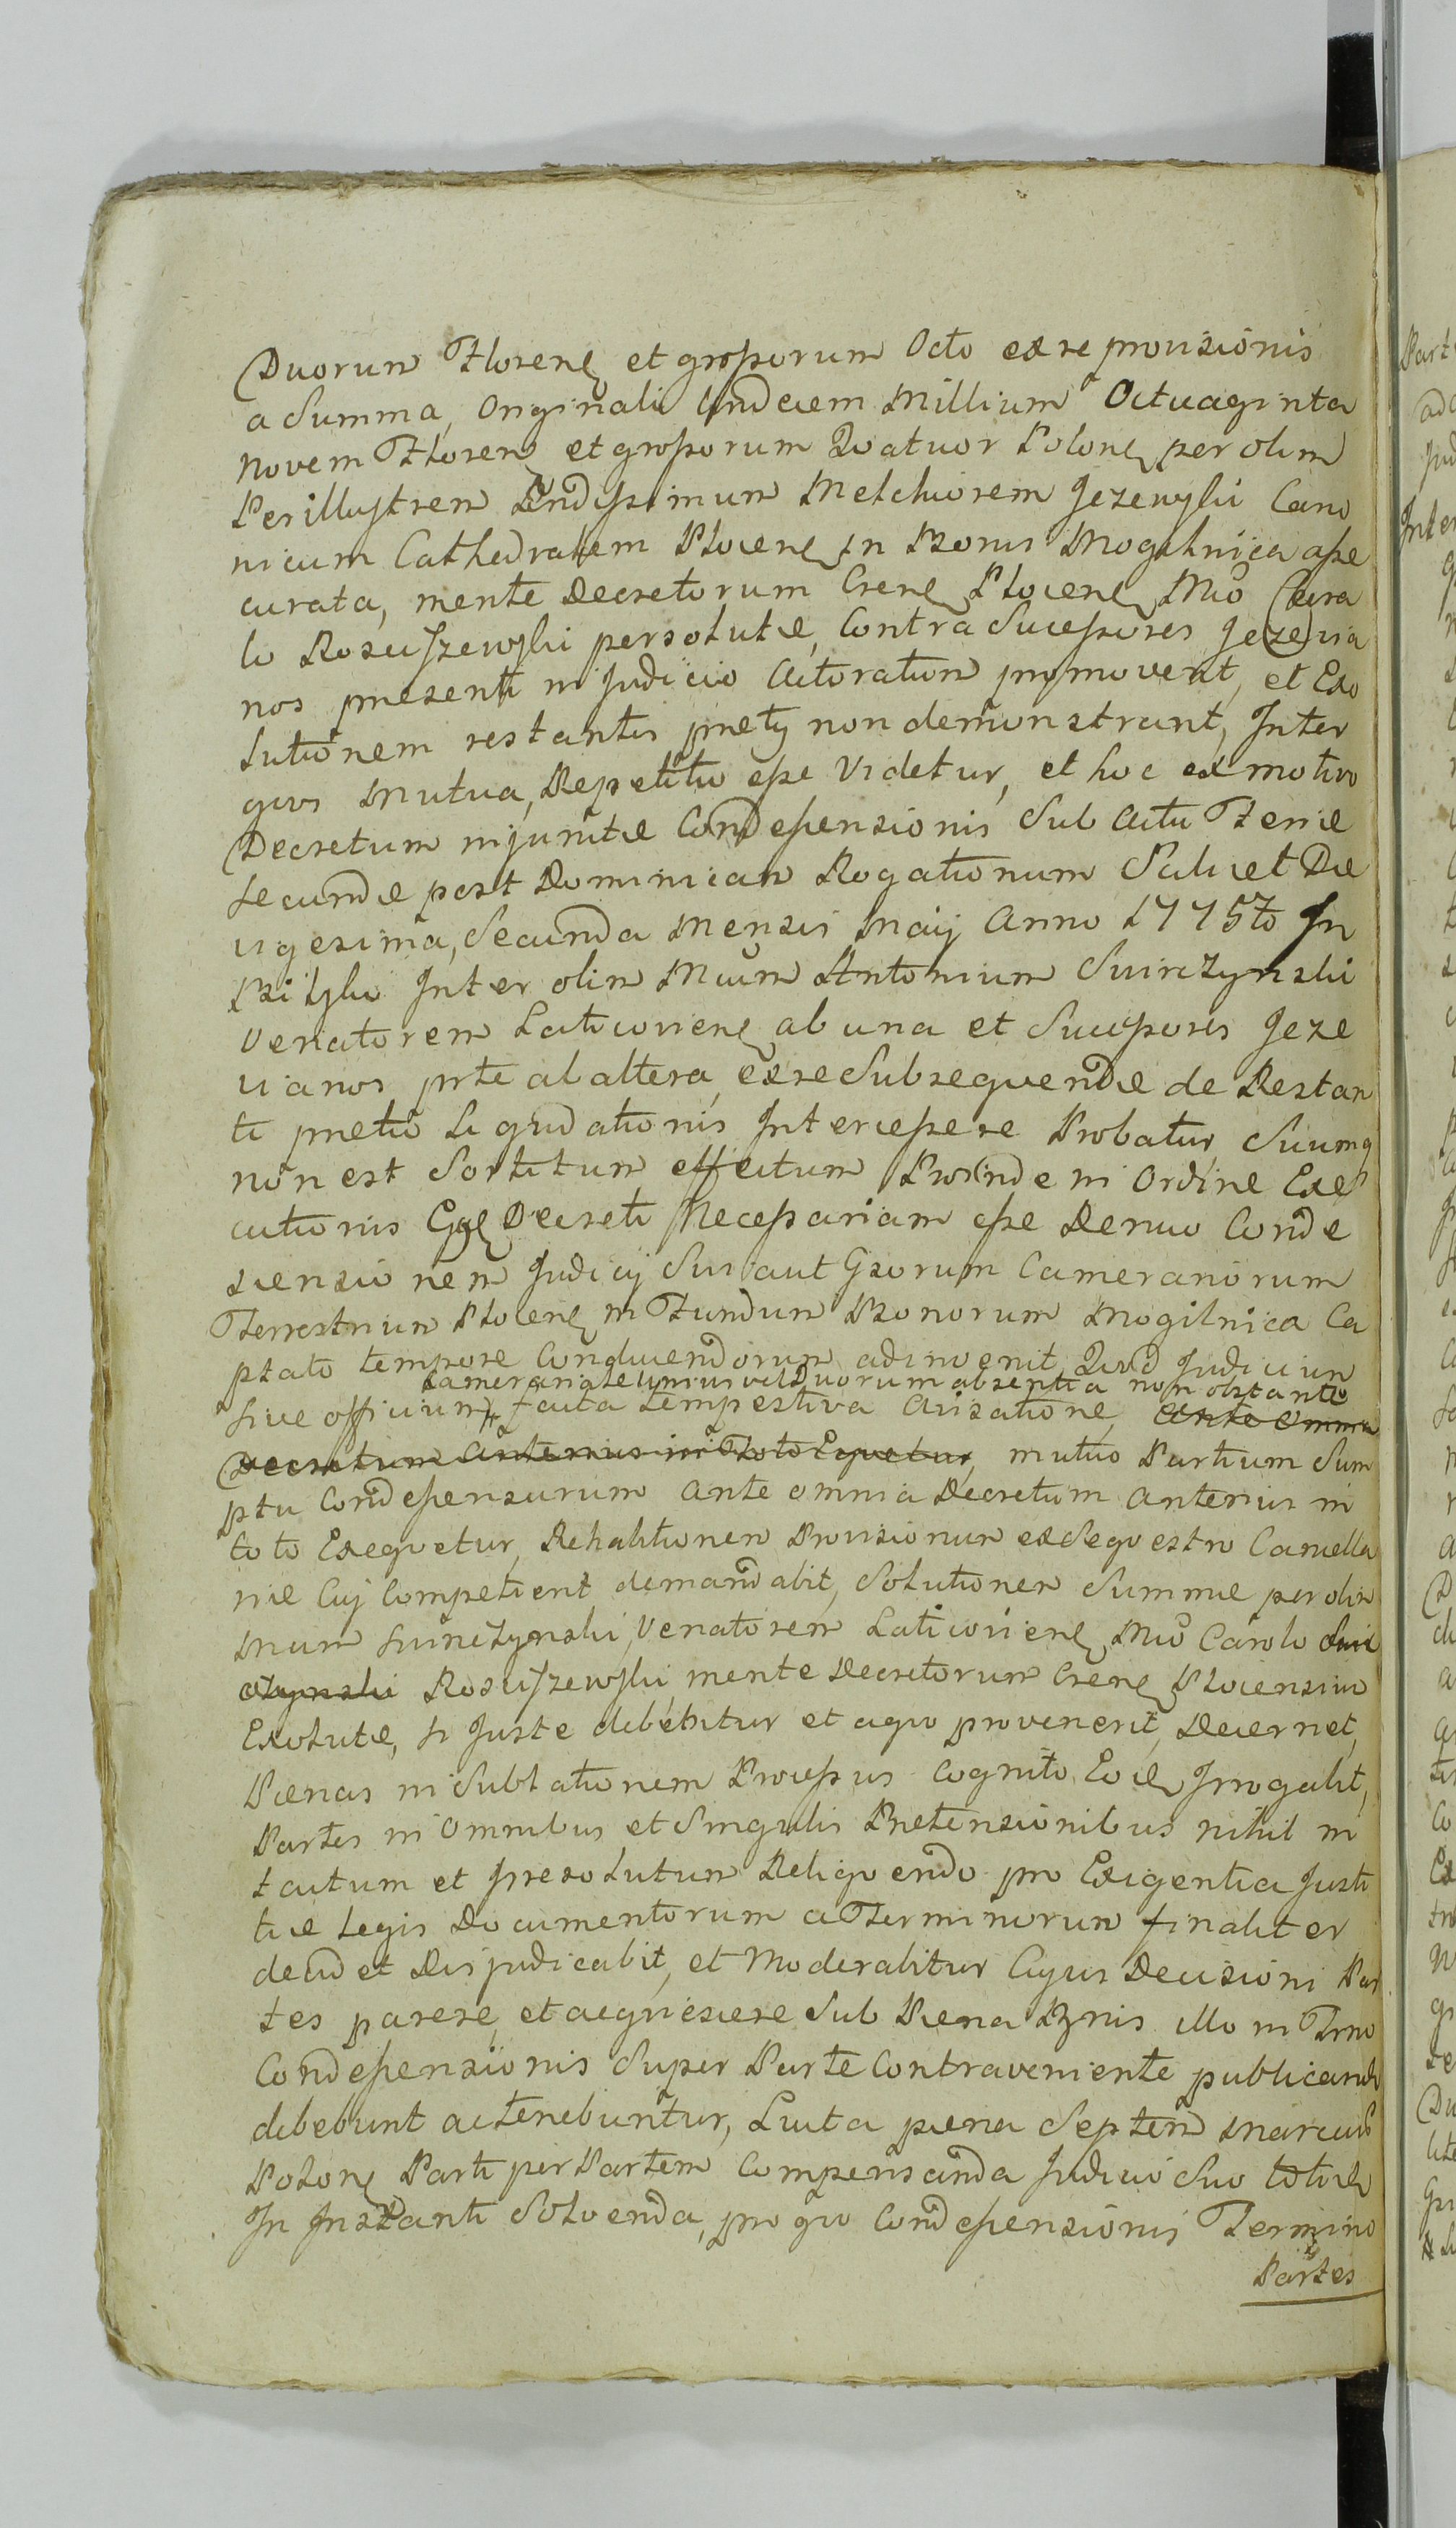 Duorum Floren et grossorum Octo ex re provisionis
a Summa, Originali Undecem Millium Octuaginta
Novem Floren et grossorum Quatuor Polon per olim
Perillustrem Rndissimum Melchiorem Jezewski Cano
nicum Cathedralem Plocen in Bonis Mogilnica asse
curata, mente Decretorum Cren Plocen Mco Caro
lo Rosciszewski persolutæ, Contra Sucessores Jezevia
nos præsenti in Judicio Actoratum promovent, et Exo
lutionem restantis pretij non demonstrant, Inter
quos Mutua, Repetitio esse Videtur, et hoc ex motivo
Decretum injunctæ Condescensionis Sub Actu Feriæ
Secundæ post Dominicam Rogationum Scilicet Die
vigesima, Secunda Mensis Maij Anno 1775to In
Bilsku Inter olim Mcum Antonium Swinczynski
Venatorem Laticovien ab una et Sucessores Jeze
vianos prte ab altera, ex re Subsequendæ de Restan
ti pretio Liquidationis Intercessere Probatur Suumq
non est Sortitum effectum Proinde in Ordine Exe
cutionis Ejus Decreti Necessariam esse Denuo Conde
scensionem Judicij Sui aut Gsorum Camerariorum
Terrestrium Plocen in Fundum Bonorum Mogilnica Ca
ptato tempore Conducendorum adinvenit, Quod Judicium
Camerariale Unius vel Duorum absentia non obstante
sive officium, facta tempestiva Avisatione, Ante Omnia
Decretum Anterius in Toto Exequetur, mutuo Partium Sum
ptu Condescensurum Ante omnia Decretum Anterius in
toto Exequetur, Rehabitionem Provisionum ex Sequestro Cancella
riæ Cuj Competient demandabit, Solutionem Summæ per olim
Mcum Swinczynski, Venatorem Laticovien Mco Carolo Swin
czynski Rosciszewski, mente Decretorum Cren Plocensium
Exolutæ, si Juste debebitur et a quo provenerit, Decernet,
Pœnas in Sublationem Processus Cognito Eoce Irrogabit,
Partes in Omnibus et Singulis Prætensionibus nihil in
tactum et Irresolutum Reliquendo pro Exigentia Justi
tiæ Legis Documentorum ac Terminorum finaliter
decidet Disjudicabit, et Moderabitur Cujus Decisioni Par
tes parere, et acquiescere Sub Pæna Bznis illo in Trno
Condescensionis Super Parte Contraveniente publicandæ
debebunt ac tenebuntur, Luita pæna Septem Marcarum
Polon Parti per Partem Compensanda Judicio Suo toties
In Instanti Solvenda, pro quo Condescensionis Termino
Partes